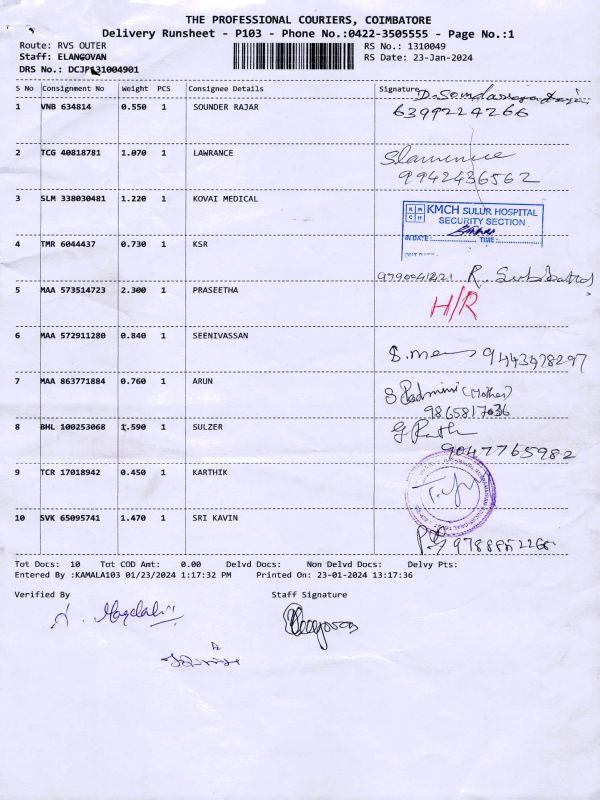 THE PROFESSIONAL COURIERS, COIMBATORE
Delivery Runsheet - P103 - Phone No.:0422-3505555 - Page No.:1
Route: RVS OUTER RS No.: 1310049
Staff: ELANGOVAN RS Date: 23-Jan-2024
DRS No.: DCJP131004901
S No Consignment No Weight PCS Consignee Details Signature
1 VNB 634814 0.550 1 SOUNDER RAJAR
6399224266
2 TCG 40818781 1.070 1 LAWRANCE
9942436562
3 SLM 338030481 1.220 1 KOVAI MEDICAL
KMCH SULUR HOSPITAL
SECURITY SECTION
IN DATE: TIME:
4 TMR 6044437 0.730 1 KSR
5 MAA 573514723 2.300 1 PRASEETHA H/R
6 MAA 572911280 0.840 1 SEENIVASSAN
9443478297
7 MAA 863771884 0.760 1 ARUN
S Padmini (Mother)
9865817036
8 BHL 100253068 1.590 1 SULZER
9047765982
9 TCR 17018942 0.450 1 KARTHIK
10 SVK 65095741 1.470 1 SRI KAVIN
Tot Docs: 10 Tot COD Amt: 0.00 Delvd Docs: Non Delvd Docs: Delvy Pts:
Entered By :KAMALA103 01/23/2024 1:17:32 PM Printed On: 23-01-2024 13:17:36
Verified By Staff Signature